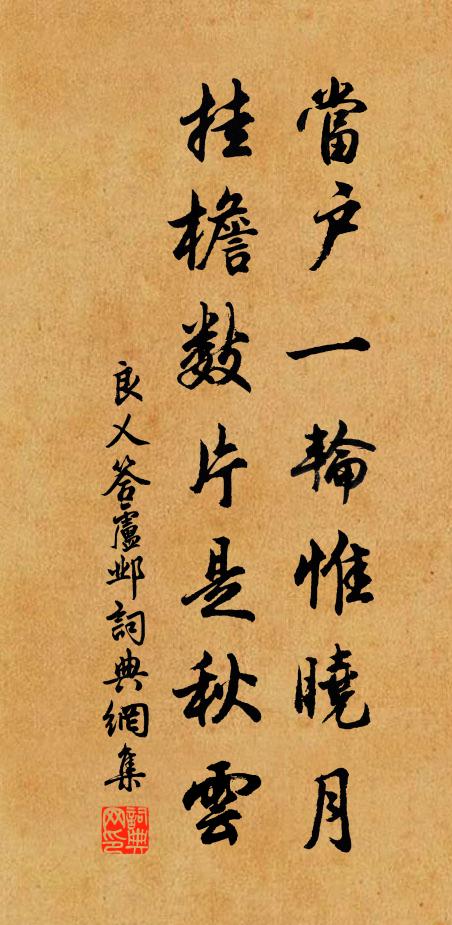 當户一輪惟曉月
挂檐數片是秋雲
良人答盧邺詞典網集
詞典网印